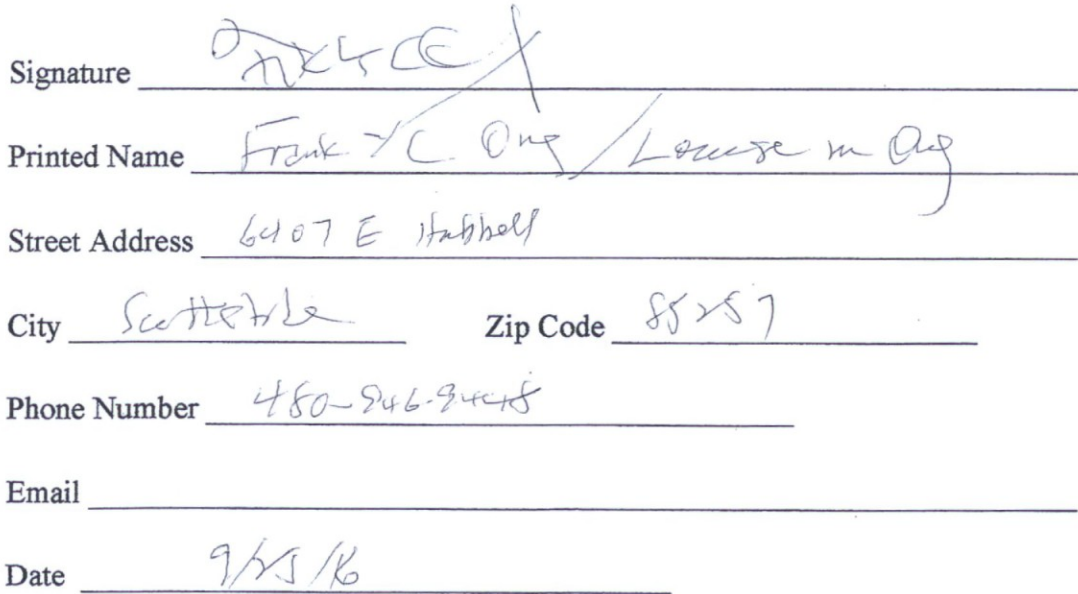 Signature
Printed Name Frank YC Ong / Louise m Ong
Street Address 6407 E Hubbell
City Scottsdale Zip Code 85257
Phone Number 480-946-9448
Email
Date 9/25/16